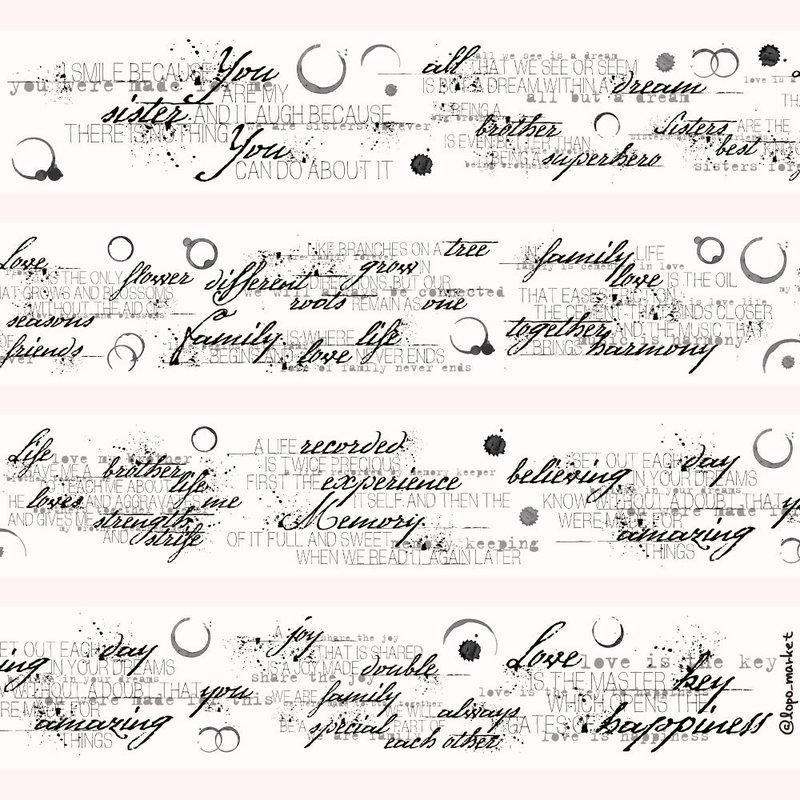 I SMILE BECAUSE You
you were made for me
ARE MY
sister AND I LAUGH BECAUSE
are sisters forever
THERE IS NOTHING You
CAN DO ABOUT IT
all we see is a dream
all THAT WE SEE OR SEEM
IS BUT A DREAM WITHIN A dream
all but a dream
BEING A
brother
IS EVEN BETTER THAN
BEING A superhero
being brothers
love is a
Sisters ARE THE
best
sisters forg
Love
IS THE ONLY flower
THAT GROWS AND BLOSSOMS
WITHOUT THE AID OF
seasons
friends
LIKE BRANCHES ON A tree
grow IN
different DIRECTIONS, BUT OUR
we will connected
roots REMAIN AS one
family IS WHERE life
BEGINS AND love NEVER ENDS
love of family never ends
IN family LIFE
family is cement in love
love IS THE OIL
THAT EASES
is love life
THE CEMENT THAT BINDS CLOSER
together AND THE MUSIC THAT
music is harmony
BRINGS harmony
Life
love my brother
GAVE ME A brother
TEACH ME ABOUT life
HE loves AND AGGRAVATES me
AND GIVES ME strength
AND strife
A LIFE recorded
IS TWICE PRECIOUS
life recorded by memory keeper
FIRST THE experience
ITSELF AND THEN THE
Memory
OF IT FULL AND SWEET
memory keeping
WHEN WE READ IT AGAIN LATER
SET OUT EACH day
believing IN YOUR DREAMS
in your dreams
KNOW WITHOUT A DOUBT, THAT y
you are made
WERE MADE FOR
amazing
THINGS
SET OUT EACH day
ing IN YOUR DREAMS
in your dreams
WITHOUT A DOUBT, THAT you
are made this
RE MADE FOR
amazing
THINGS
A joy
share the joy
THAT IS SHARED
IS A JOY MADE double
share the joy
WE ARE family
WE WILL always
BE A special PART OF
we are family
each other
Love
love is the key
IS THE MASTER key
love is
to happiness
WHICH OPENS THE
GATES OF happiness
love is happiness
@lopo.market